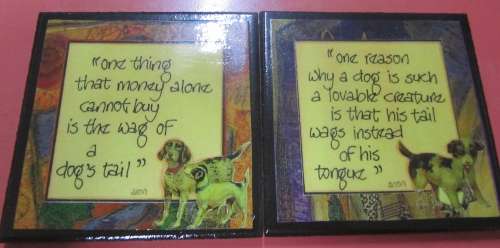 "one thing
that money alone
cannot buy
is the wag of
a
dog's tail"
anon
"one reason
why a dog is such
a lovable creature
is that his tail
wags instead
of his
tongue"
anon